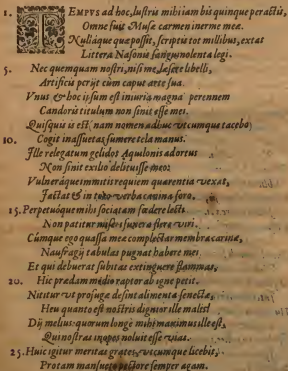 1. TEMPVS ad hoc, lustris mihi iam bis quinque peractis,
Omne fuit Musæ carmen inerme meæ.
Nullaque quæ possit, scriptis tot millibus, extat
Littera Nasonis sanguinolenta legi.
5. Nec quemquam nostri, nisi me, læsere libelli,
Artificis perijt cùm caput arte sua.
Vnus & hoc ipsum est iniuria magna perennem
Candoris titulum non sinit esse mei.
Quisquis is est, nam nomen adhuc vtcumque tacebo
10. Cogit inassuetas sumere tela manus.
Ille relegatum gelidos Aquilonis adortus
Non sinit exilio delituisse meo:
Vulneráque immitis requiem quærentia vexat,
Iactat & in toto verba canina foro.
15. Perpetuóque mihi sociatam fœdere lecti
Non patitur miseri funera flere viri.
Cúmque ego quassa meæ complectar membra carinæ,
Naufragij tabulas pugnat habere mei.
Et qui debuerat subitas extinguere flammas,
20. Hic prædam medio raptor ab igne petit.
Nititur vt profugæ desint alimenta senectæ,
Heu quanto est nostris dignior ille malis!
Dij melius: quorum longè mihi maximus ille est,
Qui nostras inopes noluit esse vias.
25. Huic igitur meritas grates, vtcumque licebit,
Pro tam mansueto pectore semper agam.